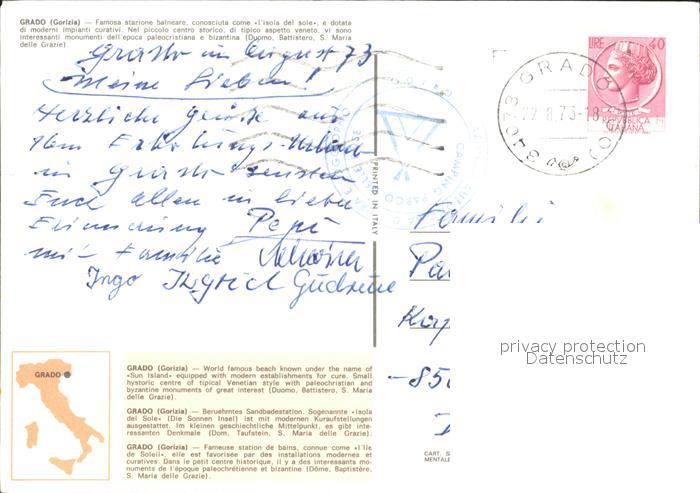 GRADO (Gorizia) — Famosa stazione balneare, conosciuta come «l'isola del sole», è dotata
di moderni impianti curativi. Nel piccolo centro storico, di tipico aspetto veneto, vi sono
interessanti monumenti dell'epoca paleocristiana e bizantina (Duomo, Battistero, S. Maria
delle Grazie).
Grado im August 73
Meine Lieben!
Herzliche Grüße aus
dem Erholungs-Urlaub
in Grado senden
Euch allen in lieber
Erinnerung Pepi
mit Familie
Ingo Ingrid Gudrune
PRINTED IN ITALY
LIRE 40
REPUBBLICA
ITALIANA
34073 GRADO (GO)
22.8.73-18
CAMPING PARCO
Familie
Pa
-85
privacy protection
Datenschutz
GRADO
GRADO (Gorizia) — World famous beach known under the name of
«Sun island» equipped with modern establishments for cure. Small
hystoric centre of tipical Venetian style with paleochristian and
byzantine monuments of great interest (Duomo, Battistero, S. Maria
delle Grazie).
GRADO (Gorizia) — Beruehmtes Sandbadestation. Sogenannte «Isola
del Sole» (Die Sonnen Insel) ist mit modernen Kuraufstellungen
ausgestattet. Im kleinen geschichtliche Mittelpunkt, es gibt inte-
ressanten Denkmale (Dom, Taufstein, S. Maria delle Grazie).
GRADO (Gorizia) — Fameuse station de bains, connue come «l'Ile
de Soleil», elle est favorisée par des installations modernes et
curatives. Dans le petit centre historique, il y a des interessants mo-
numents de l'époque paleochrétienne et bizantine (Dôme, Baptistère,
S. Maria delle Grazie).
CART. S
MENTALE